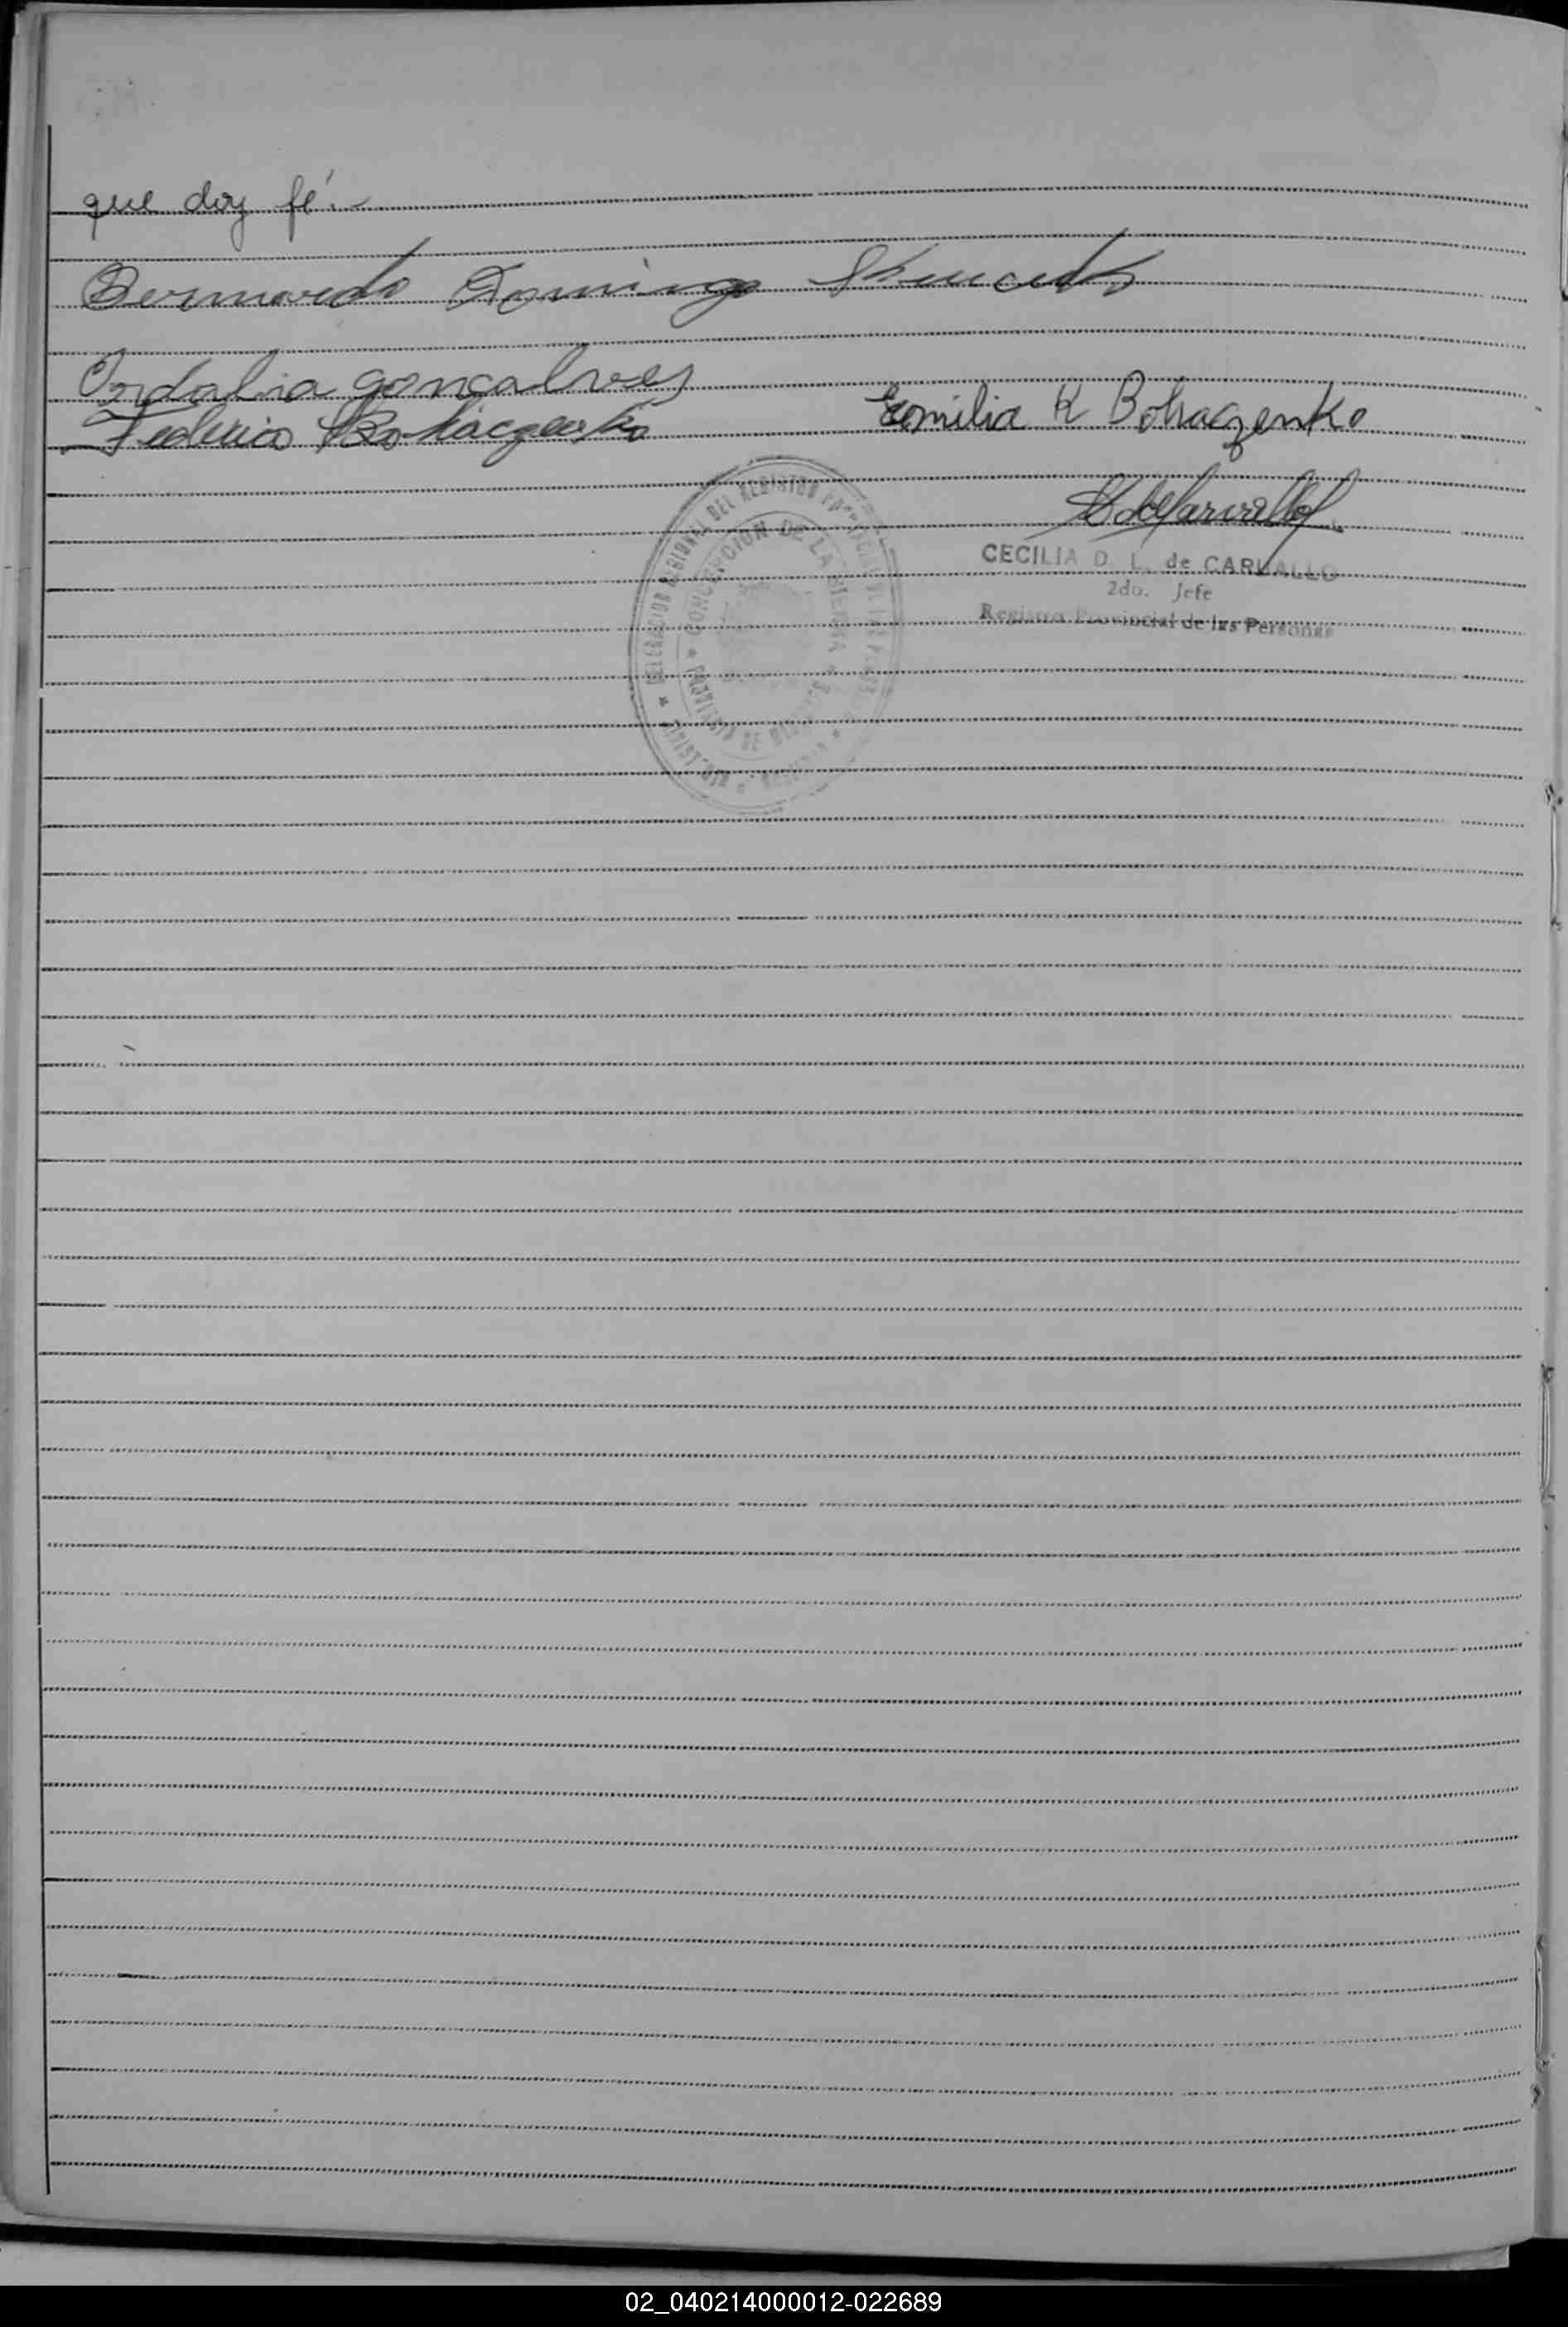 que doy fé.-
Bernardo Domingo
Ordalia Gonçalves
Federico Bohaczenko
Emilia K Bohaczenko
CdeCarvallo
CECILIA D. L. de CARVALLO
2do. Jefe
Registro Provincial de las Personas
DELEGACION REGIONAL DEL REGISTRO PROVINCIAL DE LAS PERSONAS
CONCEPCION DE LA SIERRA
PROVINCIA DE MISIONES
02_040214000012-022689